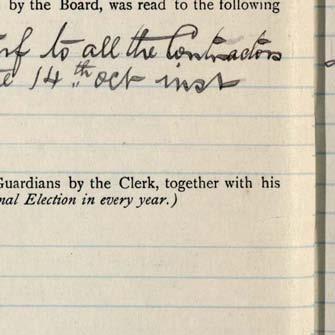 by the Board, was read to the following
to all the Contractors
14th Oct inst
Guardians by the Clerk, together with his
nal Election in every year.)